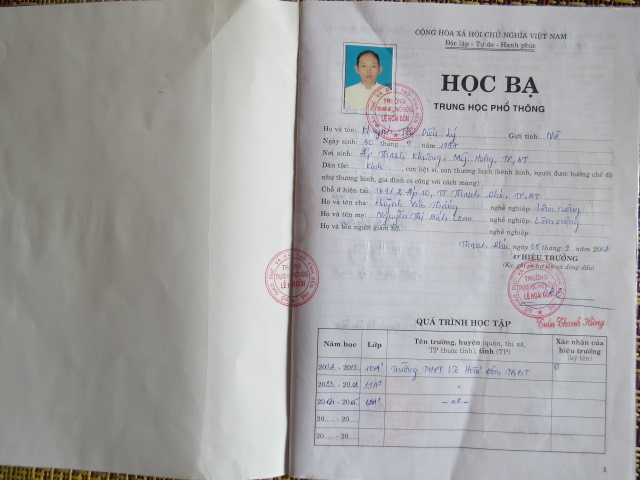 CỘNG HÒA XÃ HỘI CHỦ NGHĨA VIỆT NAM
Độc lập - Tự do - Hạnh phúc
HỌC BẠ
TRUNG HỌC PHỔ THÔNG
TRƯỜNG
TRUNG HỌC PHỔ THÔNG
LÊ HOÀI ĐÔN
Họ và tên: Huỳnh Thị Diệu Lý Giới tính: Nữ
Ngày sinh: 30 tháng năm
Nơi sinh: Ấp Thạnh Khương, Mỹ Hưng, TP, BT
Dân tộc: Kinh, con liệt sĩ, con thương binh (bệnh binh, người được hưởng chế độ
như thương binh, gia đình có công với cách mạng)
Chỗ ở hiện tại: Ấp 10, TT Thạnh Phú, TP, BT
Họ và tên cha: Huỳnh Văn nghề nghiệp: Làm ruộng
Họ và tên mẹ: Nguyễn Thị Bích Loan nghề nghiệp: Làm ruộng
Họ và tên người giám hộ: nghề nghiệp:
Thạnh Phú, ngày 05 tháng 9 năm 2012
HIỆU TRƯỞNG
(Ký, ghi rõ họ tên và đóng dấu)
TRƯỜNG
TRUNG HỌC PHỔ THÔNG
LÊ HOÀI ĐÔN
TRƯỜNG
LÊ HOÀI ĐÔN
Trần Thanh Hùng
QUÁ TRÌNH HỌC TẬP
Năm học Lớp Tên trường, huyện (quận, thị xã, TP thuộc tỉnh), tỉnh (TP) Xác nhận của hiệu trưởng (ký tên)
2012 - 2013 10A1 Trường THPT Lê Hoài Đôn
2013 - 2014 11A1 "
2014 - 2015 12A1 - nt -
20..... - 20.....
20..... - 20.....
1